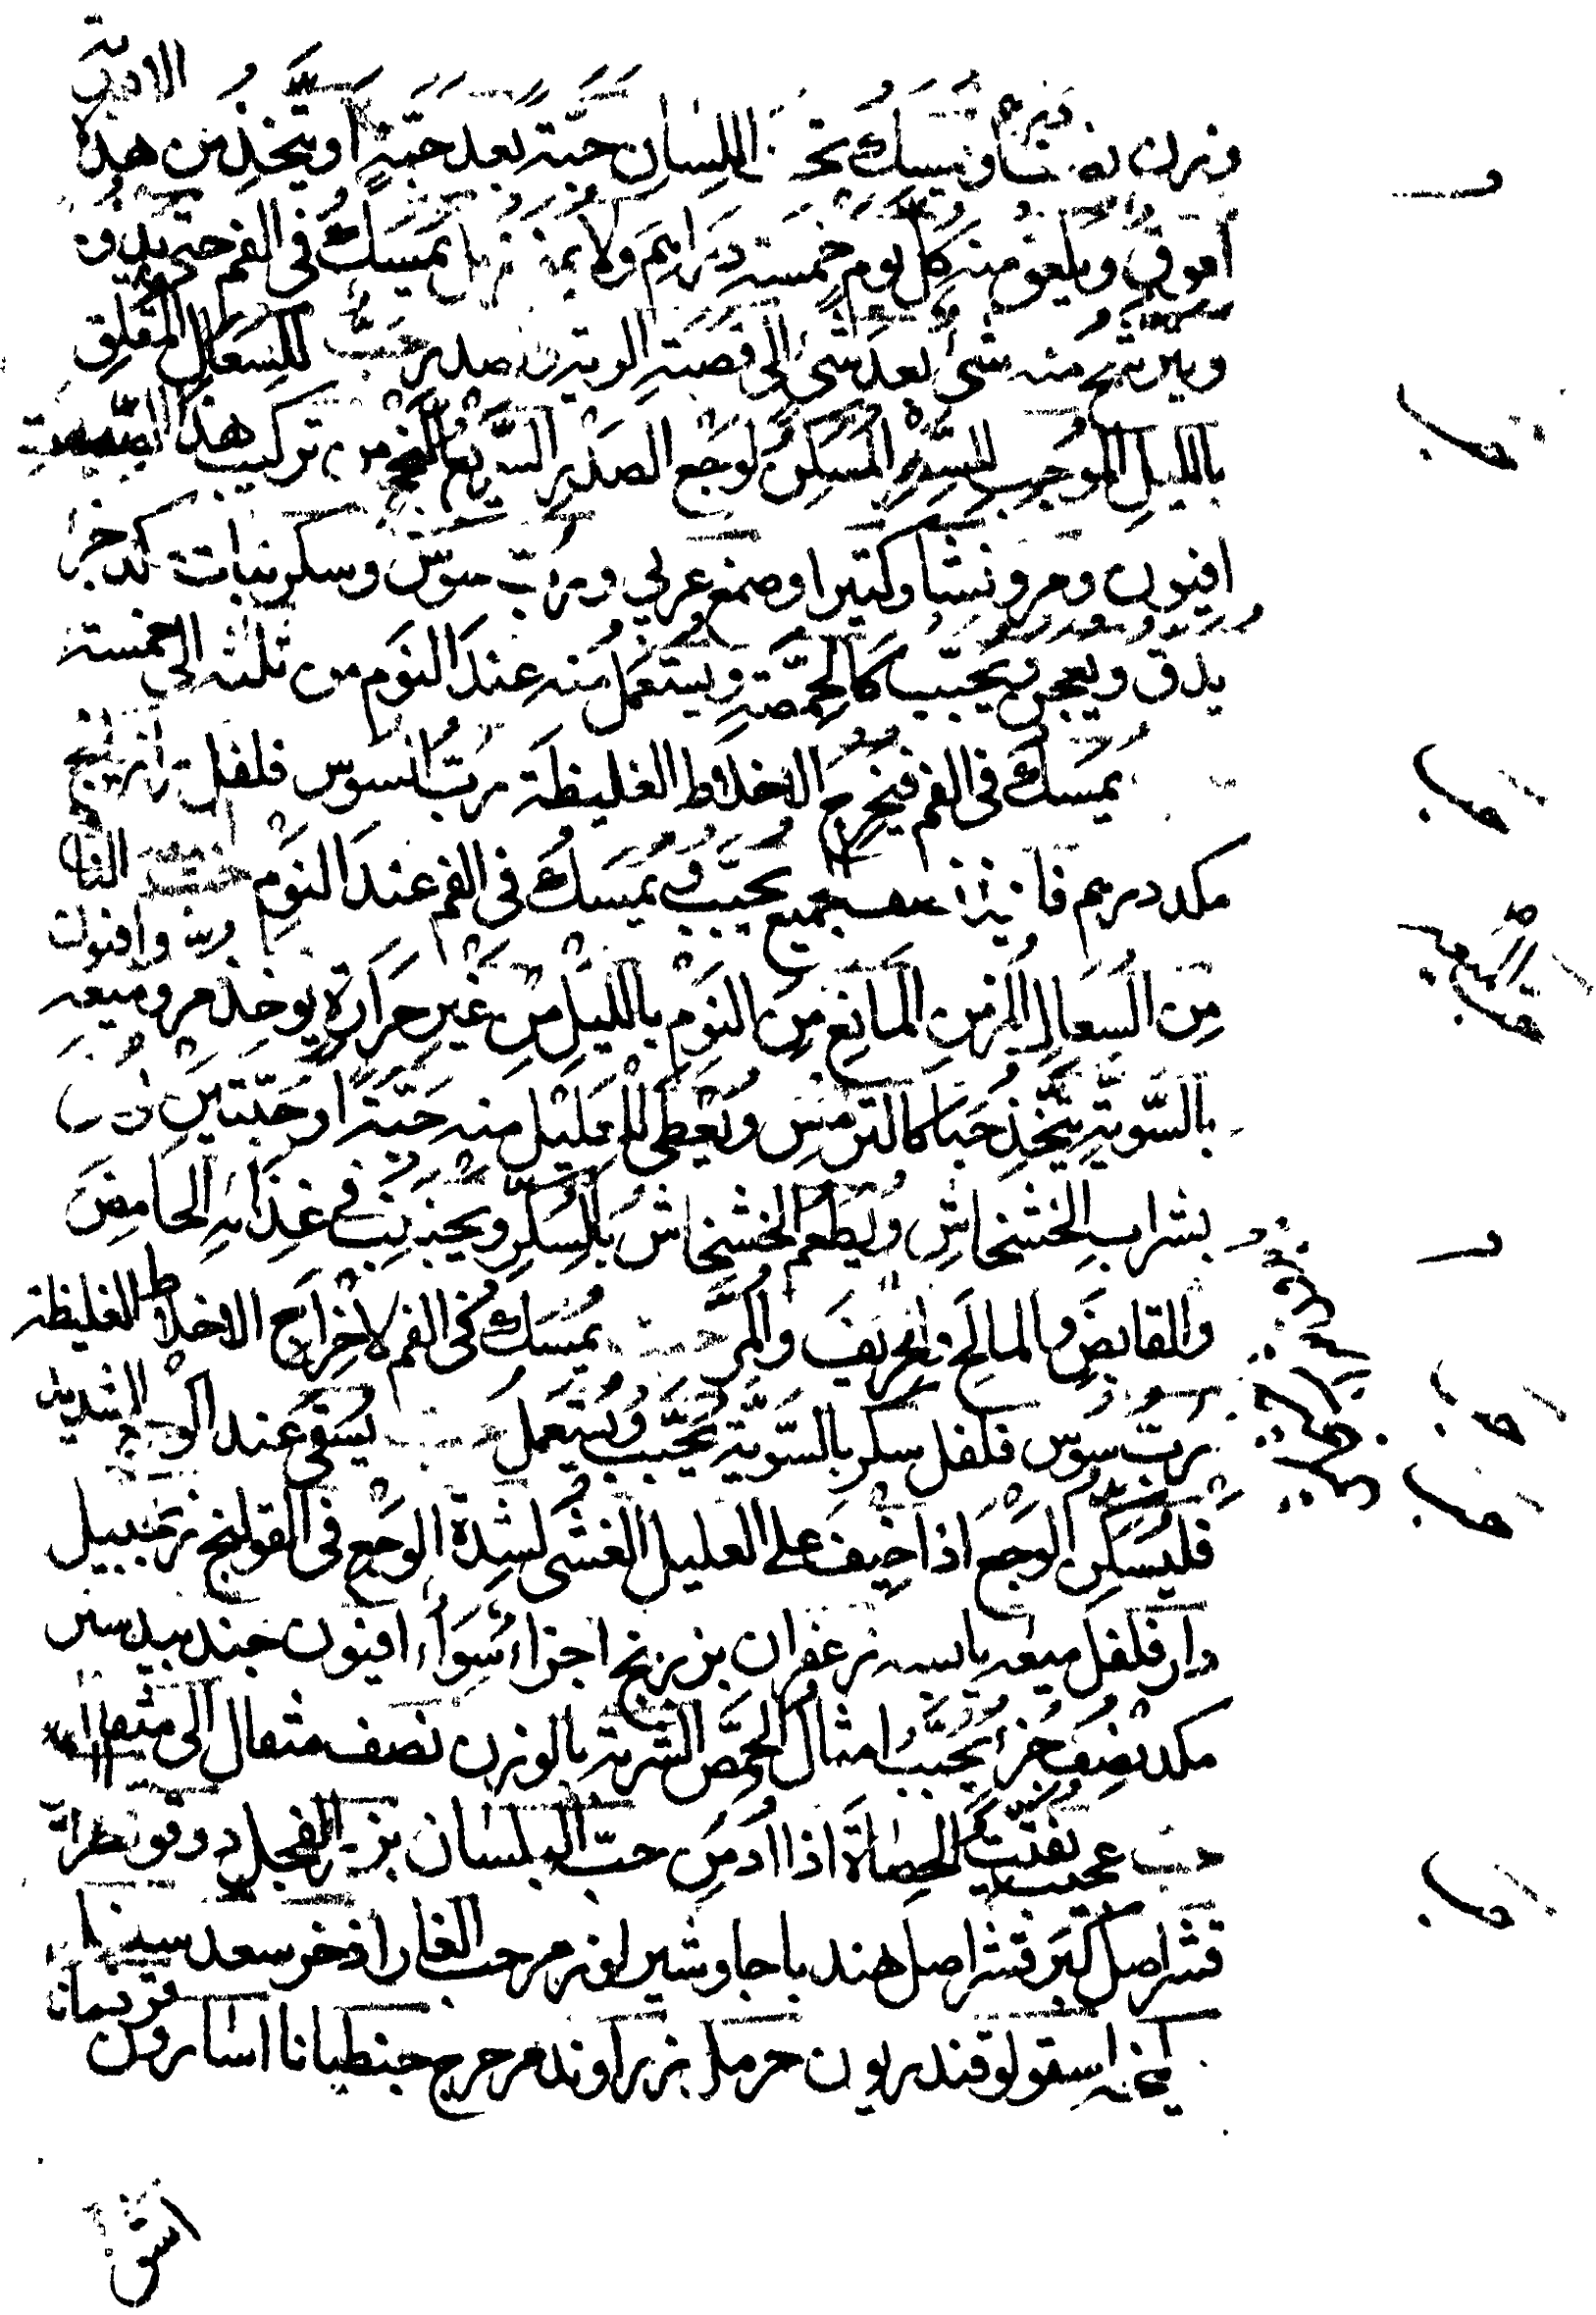 وزن نصف درهم ويمسك تحت اللسان حبة بعد حبة او يتخذ من هذه الادوية
لعوق ويلعق منه كل يوم خمسة دراهم ولا يمسك في الفم حتى يذوب
منه شئ بعد شئ الى قصبة الرية حب للسعال المقلق
بالليل الموجب للسهر المسكن لوجع الصدر السريع النجح من تركيب هذا
افيون ومر ونشا وكثيرا وصمغ عربي ورب سوس وسكر نبات مكد جزء
يدق ويعجن ويحبب كالحمصة ويستعمل منه عند النوم من ثلثه الى خمسة
يمسك في الفم فيخرج الاخلاط الغليظة رب السوس فلفل رازيانج
مكد درهم فانيذ الجميع يحبب ويمسك في الفم عند النوم حب
من السعال المزمن المانع من النوم بالليل من غير حرارة يوخذ مر وميعه وافيون
بالسوية يتخذ حبا كالترمس ويعطى للعليل منه حبة او حبتين
بشراب الخشخاش ويطعم الخشخاش بالسكر ويجنب في غذائه الحامض
والقابض والمالح والحريف والمر حب يمسك في الفم لاخراج الاخلاط الغليظة
رب سوس فلفل سكر بالسوية يحبب ويستعمل حب يسقى عند الوجع الشديد
فليسكن الوجع اذا خيف على العليل الغشى لشدة الوجع في القولنج زنجبيل
دار فلفل ميعه يابسه زعفران بزر بنج اجزاء سواء افيون جندبيدستر
مكد نصف جزء يحبب امثال الحمص الشربة بالوزن نصف مثقال الى مثقال
حب عجيب يفتت الحصاة اذا ادمن حب البلسان بزر الفجل دوقو
قشر اصل كبر قشر اصل هندبا جاوشير لوز مر حب الغار اذخر سعد
اسقولوقندريون حرمل زراوند مدحرج جنطيانا اسارون قردمانا
اشق
حب
حب
حب
حب
حب